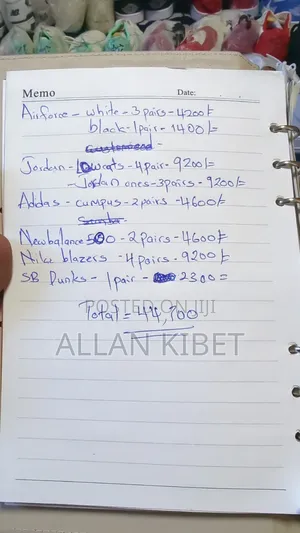 Memo Date:
Airforce - white - 3 pairs - 4200/=
black - 1 pair - 1400/=
Jordan - 4 pair - 9200/=
- Jordan ones - 3 pairs - 9200/=
Addas - cumpus - 2 pairs - 4600/=
Newbalance 500 - 2 pairs - 4600/=
Nike blazers - 4 pairs - 9200/=
SB Dunks - 1 pair - 2300=
POSTED ON JIJI
Total = 44,700
ALLAN KIBET